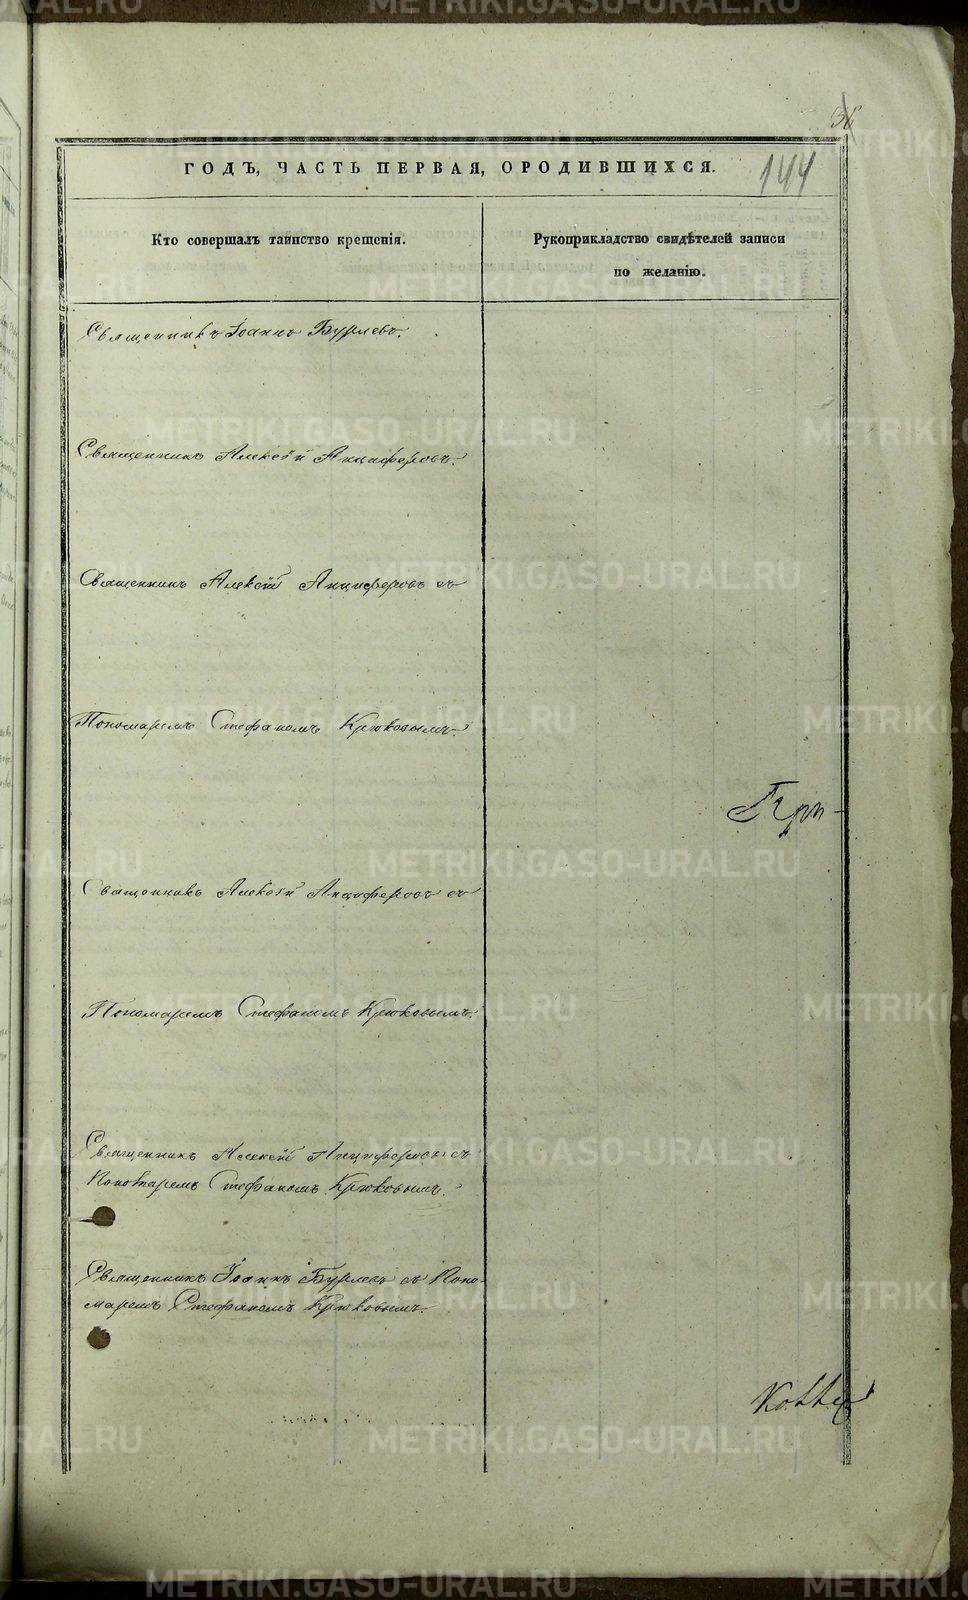 144
ГОДЪ, ЧАСТЬ ПЕРВАЯ, ОРОДИВШИХСЯ.
Кто совершалъ таинство крещенія.
Рукоприкладство свидѣтелей записи
по желанію.
Священникъ Іоаннъ Бурлевъ.
Священникъ Алексѣй Анциферовъ.
Священникъ Алексѣй Анциферовъ съ
Пономаремъ Стефаномъ Крюковымъ.
При-
Священникъ Алексѣй Анциферовъ съ
Пономаремъ Стефаномъ Крюковымъ.
Священникъ Алексѣй Анциферовъ съ
Пономаремъ Стефаномъ Крюковымъ.
Священникъ Іоаннъ Бурлевъ съ Поно-
маремъ Стефаномъ Крюковымъ.
METRIKI.GASO-URAL.RU